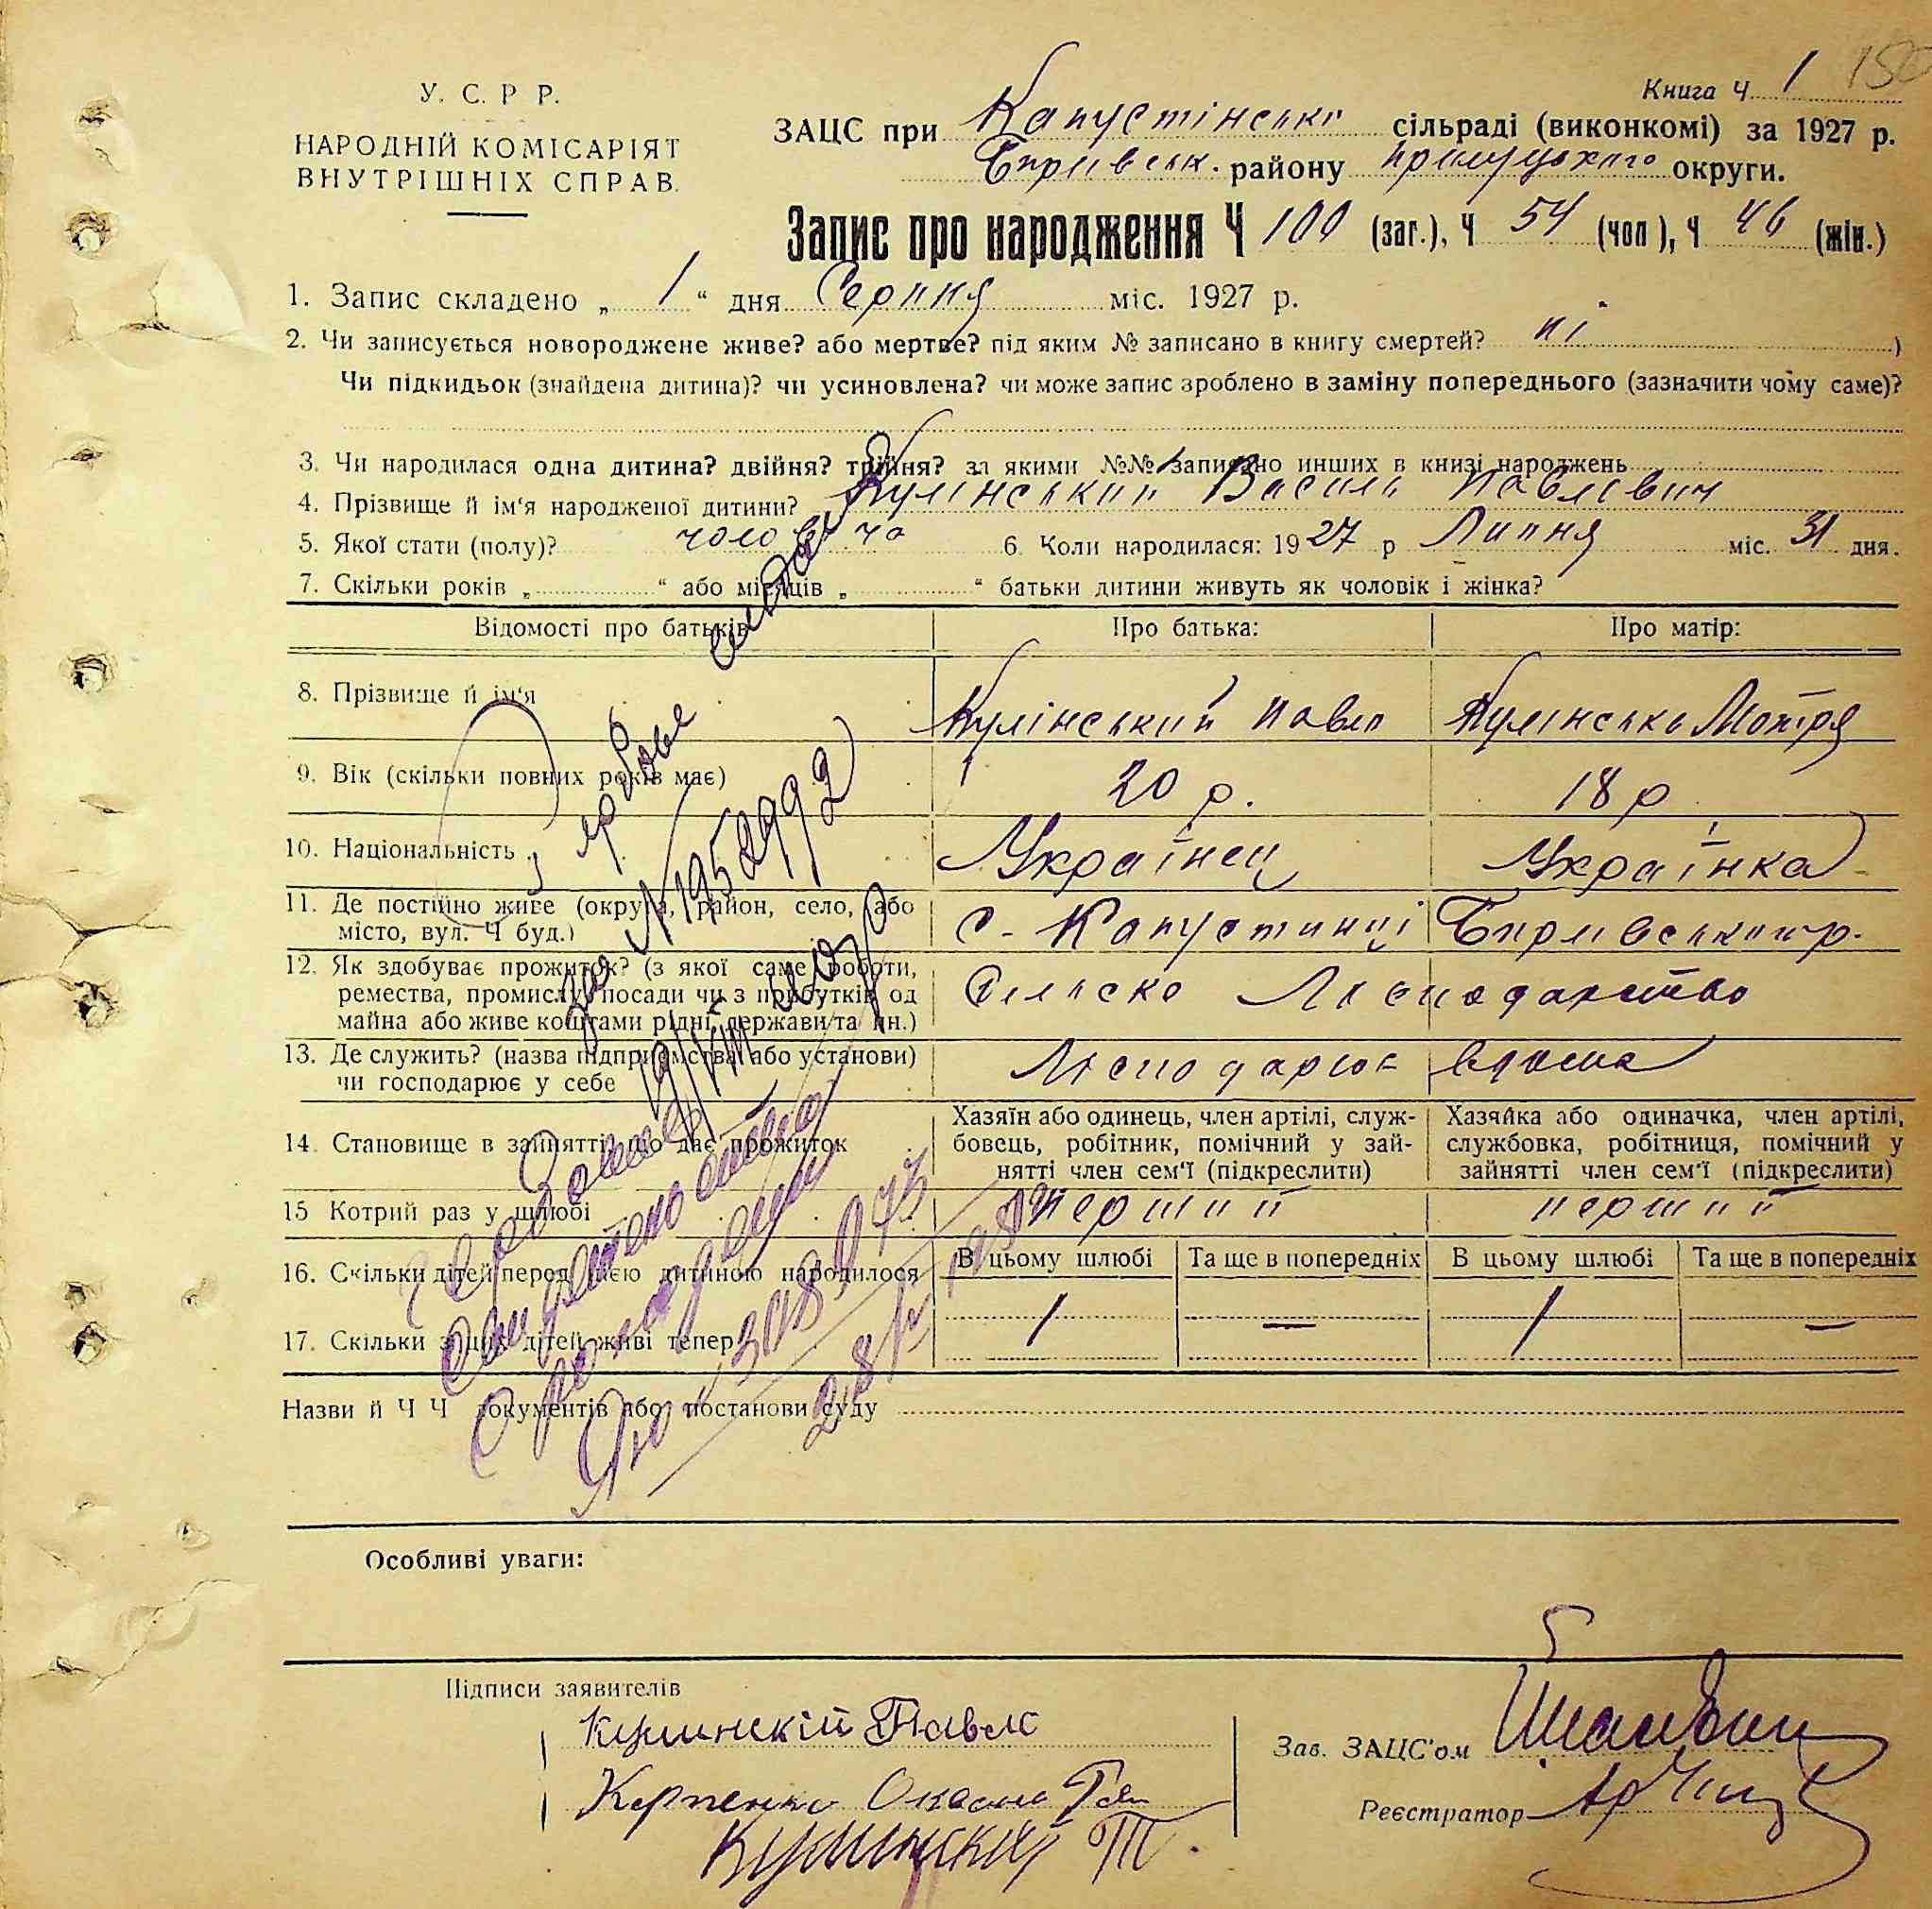 Книга Ч 1
У. С. Р Р.
НАРОДНІЙ КОМІСАРІЯТ
ВНУТРІШНІХ СПРАВ.
ЗАЦС при Капустінські сільраді (виконкомі) за 1927 р.
району Прилуцького округи.
Запис про народження Ч 100 (заг.), Ч 54 (чол), Ч 46 (жін.)
1. Запис складено „ 1 “ дня Серпня міс. 1927 р.
2. Чи записується новороджене живе? або мертве? під яким № записано в книгу смертей? ні )
Чи підкидьок (знайдена дитина)? чи усиновлена? чи може запис зроблено в заміну попереднього (зазначити чому саме)?
3. Чи народилася одна дитина? двійня? трійня? за якими №№ записано инших в книзі народжень
4. Прізвище й ім'я народженої дитини? Кулінський Василь Павлович
5. Якої стати (полу)? чоловіча 6. Коли народилася: 1927 р Липня міс. 31 дня.
7. Скільки років „ “ або місяців „ “ батьки дитини живуть як чоловік і жінка?
Відомості про батьків Про батька: Про матір:
8. Прізвище й ім'я Кулінський Павло Кулінська Мотря
9. Вік (скільки повних років має) 20 р. 18 р
10. Національність Українец Українка
11. Де постійно живе (округа, район, село, або
місто, вул. Ч буд.) с. Капустинці
12. Як здобуває прожиток? (з якої саме роботи,
ремества, промислу, посади чи з прибутків од
майна або живе коштами рідні, держави та ин.)
Сільске Господарство
13. Де служить? (назва підприємства або установи)
чи господарює у себе Господарює вдома
14. Становище в зайнятті, що дає прожиток
Хазяїн або одинець, член артілі, служ-
бовець, робітник, помічний у зай-
нятті член сем'ї (підкреслити)
Хазяйка або одиначка, член артілі,
службовка, робітниця, помічний у
зайнятті член сем'ї (підкреслити)
15 Котрий раз у шлюбі перший перший
16. Скільки дітей перед цією дитиною народилося
В цьому шлюбі Та ще в попередніх В цьому шлюбі Та ще в попередніх
1 — 1 —
17. Скільки з цих дітей живі тепер
Назви й Ч Ч документів або постанови суду
Особливі уваги:
Підписи заявителів
Кулинскій Павло
Оксана
Кулинский
Зав. ЗАЦС'ом
Реєстратор
за № 1952992
свидетельство
о рождении